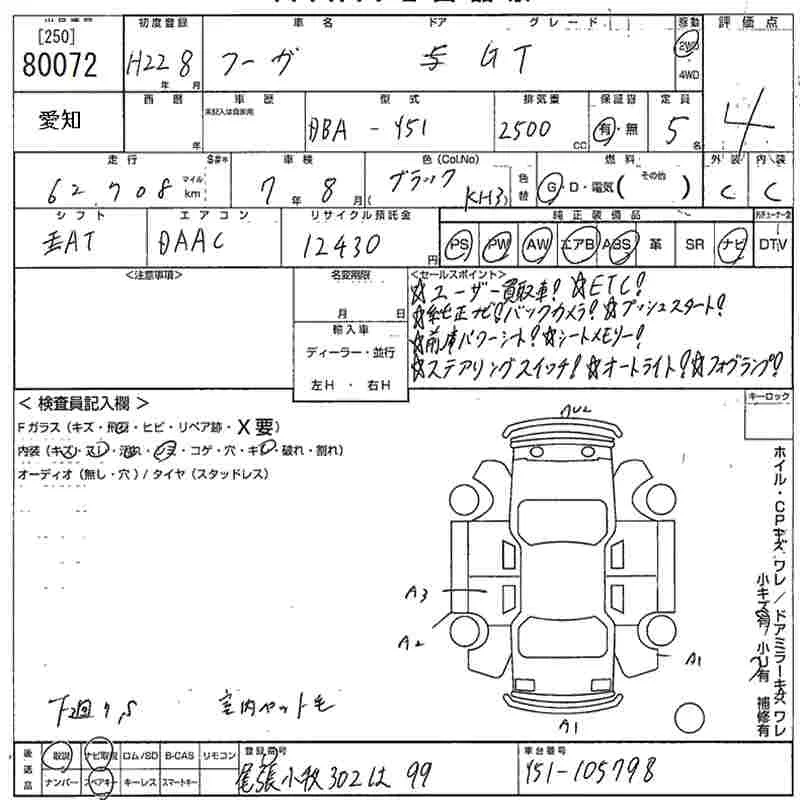 [250]
80072
初度登録 車名 ドア グレード 駆動 評価点
H22 8 年 月 フーガ GT 2WD 4WD 4
愛知
西暦 年 車歴 型式 排気量 保証書 定員
未記入は自家用
DBA - Y51 2500 CC 有・無 5 名
走行 車検 色 (Col.No) 燃料 外装 内装
62,708 マイル km 7 年 8 月 ( ブラック KH3) 色替 G・D・電気( その他 ) C C
シフト エアコン リサイクル預託金 純正装備品
AT AAC 12430 円 PS PW AW エアB ABS 革 SR ナビ DTV
<注意事項> 名変期限 <セールスポイント>
月 日
☆ユーザー買取車! ☆ETC!
☆純正ナビ!バックカメラ! ☆プッシュスタート!
☆前席パワーシート! ☆シートメモリー!
☆ステアリングスイッチ! ☆オートライト! ☆フォグランプ!
輸入車
ディーラー・並行
左H ・ 右H
<検査員記入欄>
キーロック
Fガラス (キズ・飛石・ヒビ・リペア跡・X要)
内装 (キズ・スレ・汚れ・シミ・コゲ・穴・キレ・破れ・割れ)
オーディオ (無し・穴) / タイヤ (スタッドレス)
ホイル・CPキズ ワレ / ドアミラーキズ ワレ
小キズ有 / 小U有 補修有
AU2
A3
A2
A1
A1
下廻り,S 室内ペット毛
後送品 取説 ナビ取説 ロム/SD B-CAS リモコン 登録番号 車台番号
ナンバー スペアキー キーレス スマートキー 尾張小牧302は 99 Y51-105798